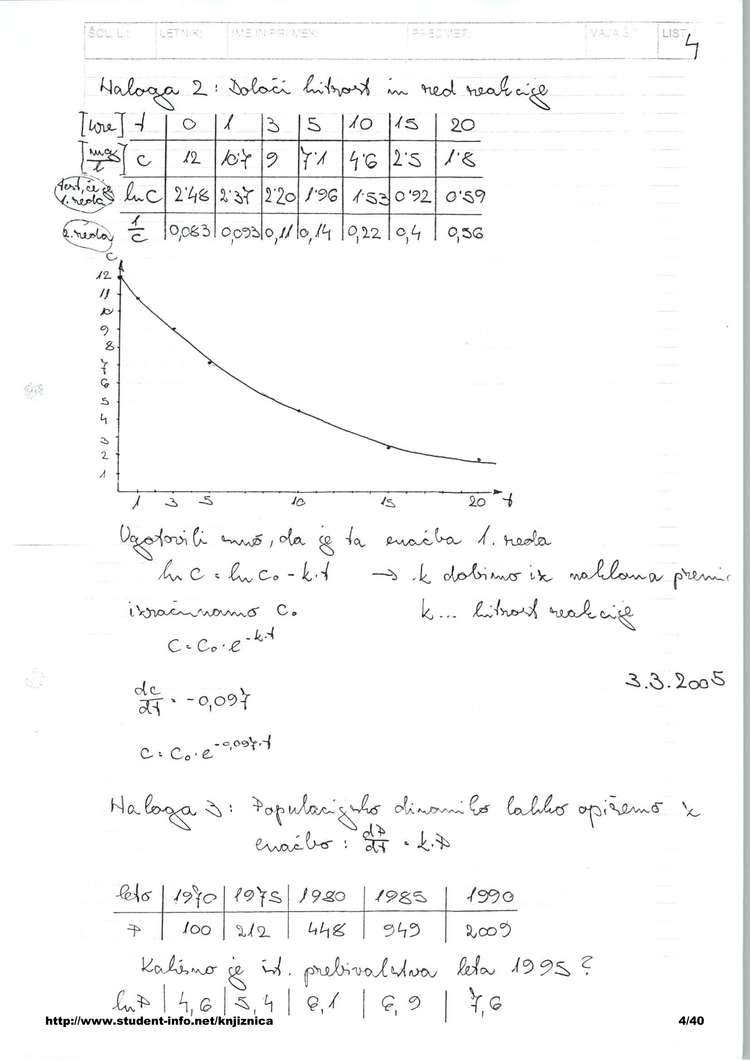 ŠOL. L.: LETNIK: IME IN PRIIMEK: PREDMET: VAJA ŠT.: LIST: 4
Naloga 2: Določi hitrost in red reakcije
[ure] t | 0 | 1 | 3 | 5 | 10 | 15 | 20
[mg/l] c | 12 | 10.7 | 9 | 7.1 | 4.6 | 2.5 | 1.8
test, če je 1. reda ln C | 2.48 | 2.37 | 2.20 | 1.96 | 1.53 | 0.92 | 0.59
2. reda 1/c | 0,083 | 0,093 | 0,11 | 0,14 | 0,22 | 0,4 | 0,56
C
12
11
10
9
8
7
6
5
4
3
2
1
1 3 5 10 15 20 t
Ugotovili smo, da je ta enačba 1. reda
ln C = ln C₀ - k.t → k dobimo iz naklona premic
izračunamo C₀ k... hitrost reakcije
C = C₀ · e^-k.t
3.3.2005
dc/dt = -0,097
C = C₀ · e^-0,097.t
Naloga 3: Populacijsko dinamiko lahko opišemo z
enačbo: dP/dt = k.P
leto | 1970 | 1975 | 1980 | 1985 | 1990
P | 100 | 212 | 448 | 949 | 2009
Kakšno je št. prebivalstva leta 1995?
ln P | 4,6 | 5,4 | 6,1 | 6,9 | 7,6
http://www.student-info.net/knjiznica 4/40